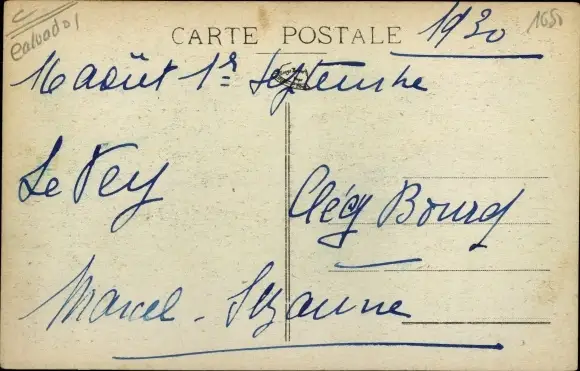 Calvados
CARTE POSTALE
1930
1650
16 août 1er Septembre
Le Vey
Clécy Bourg
Marcel - Suzanne